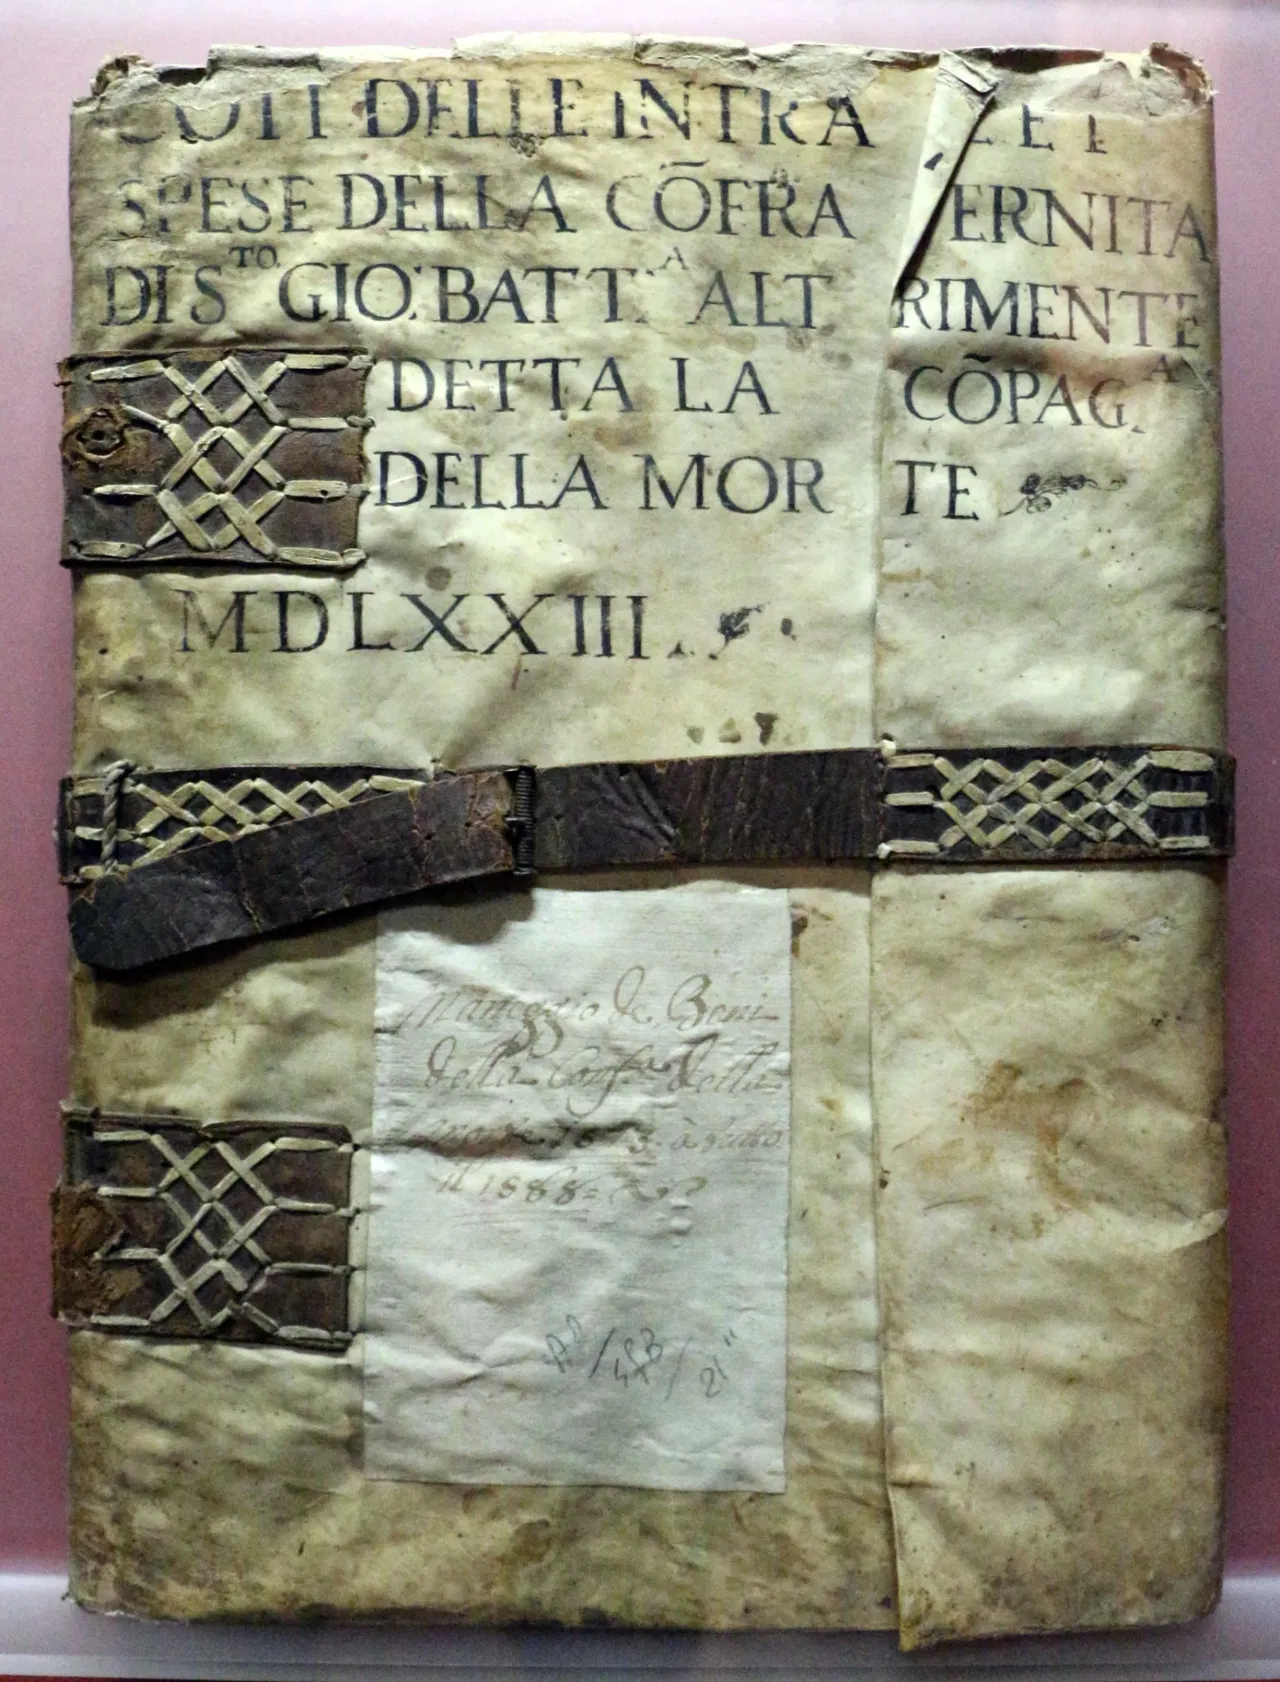 DELLE INTRA
SPESE DELLA CÕFRA ERNITA
DI S.TO GIO: BATT.A ALT RIMENTE
DETTA LA CÕPAG.A
DELLA MOR TE
MDLXXIII
Maneggio de Beni
della Conf.a della
à tutto
il 1888
21"